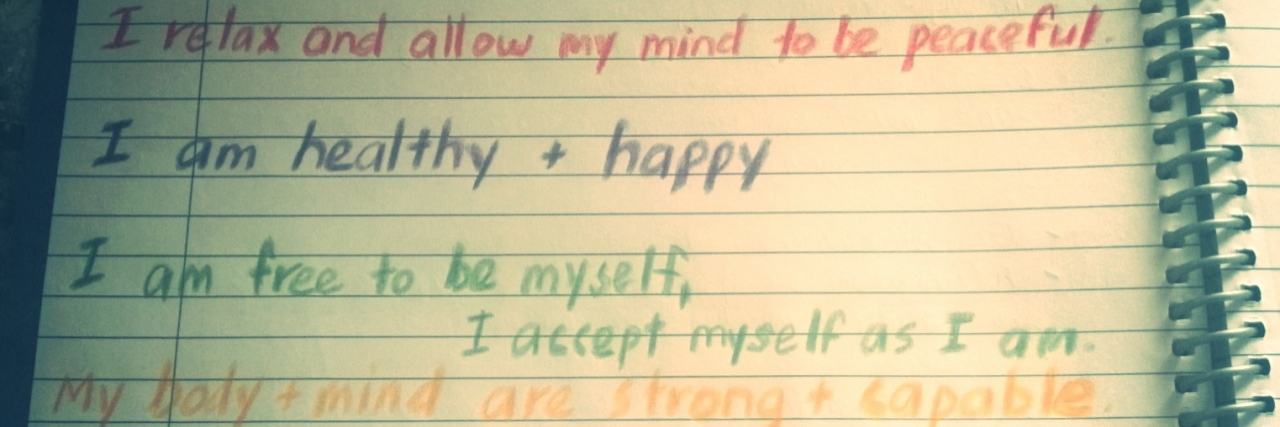 I relax and allow my mind to be peaceful.
I am healthy + happy
I am free to be myself,
I accept myself as I am.
My body + mind are strong + capable.